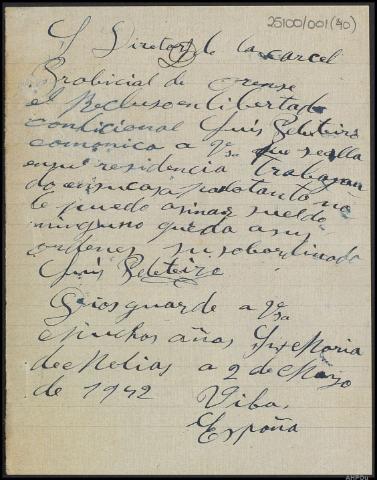 25100/001(40)
S Diretor de la carcel
Probicial de Orense
el Recluso en libertad
condicional Luis Peleteiro
comonica a Vsa que se alla
en su residencia Trabajan
do en su casa, portanto no
le puedo asinar sueldo
ninguno queda a sus
ordenes su subordinado
Luis Peleteiro
Dios guarde a Vsa
Muchos años Sta Maria
de Melias a 2 de Mayo
de 1942 Viba,
España
AHPOu